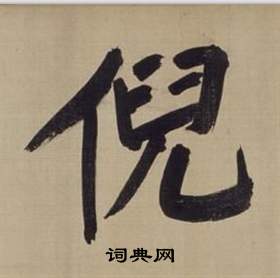 倪
词典网